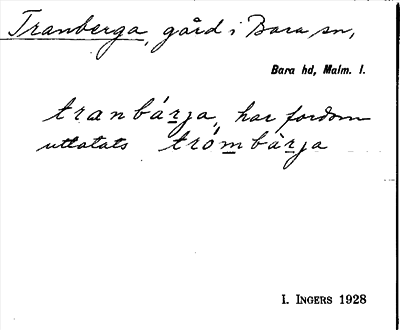 Tranberga, gård i Bara sn,
Bara hd, Malm. l.
tranbárja, har fordom
uttatats trómbàrja
I. INGERS 1928